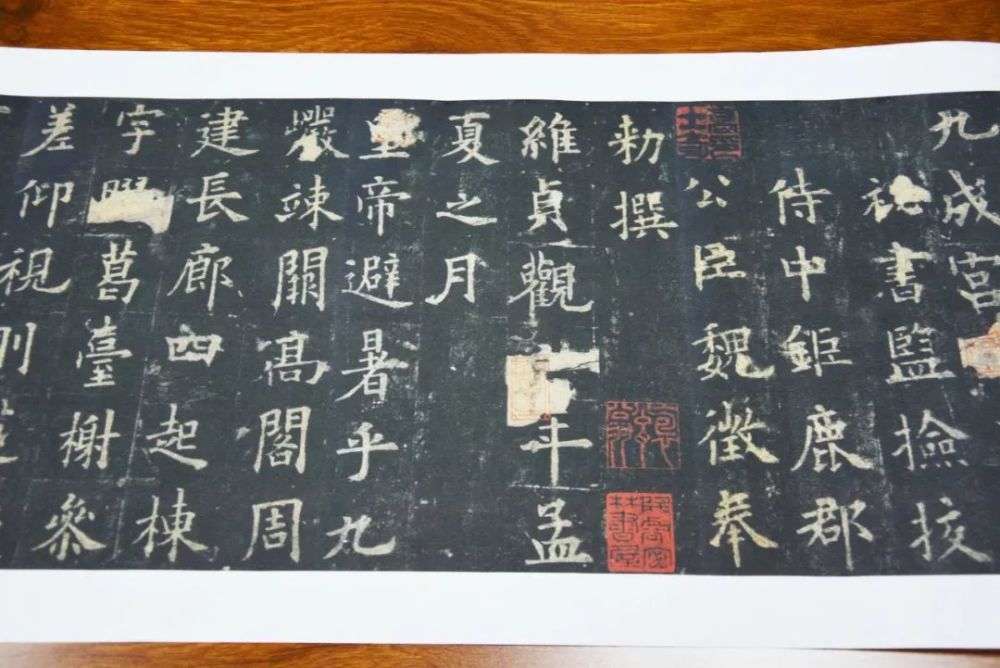 九成宮
祕書監撿挍
侍中鉅鹿郡
公臣魏徵奉
勑撰
維貞觀年孟
夏之月
皇帝避暑乎九
巖竦闕高閣周
建長廊四起棟
宇膠葛臺榭參
差仰視